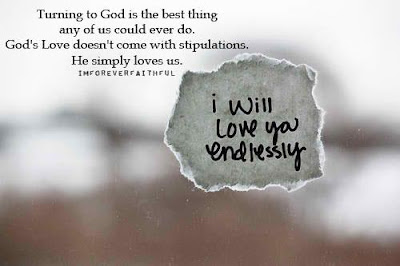 Turning to God is the best thing
any of us could ever do.
God's Love doesn't come with stipulations.
He simply loves us.
IMFOREVERFAITHFUL
i will
love ya
endlessly